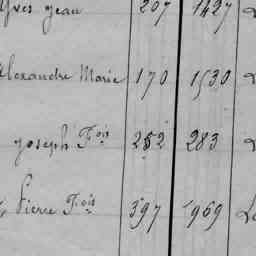 Yves Jean 207 1427
Alexandre Marie 170 1530
Joseph Fois 252 283
Pierre Fois 397 969